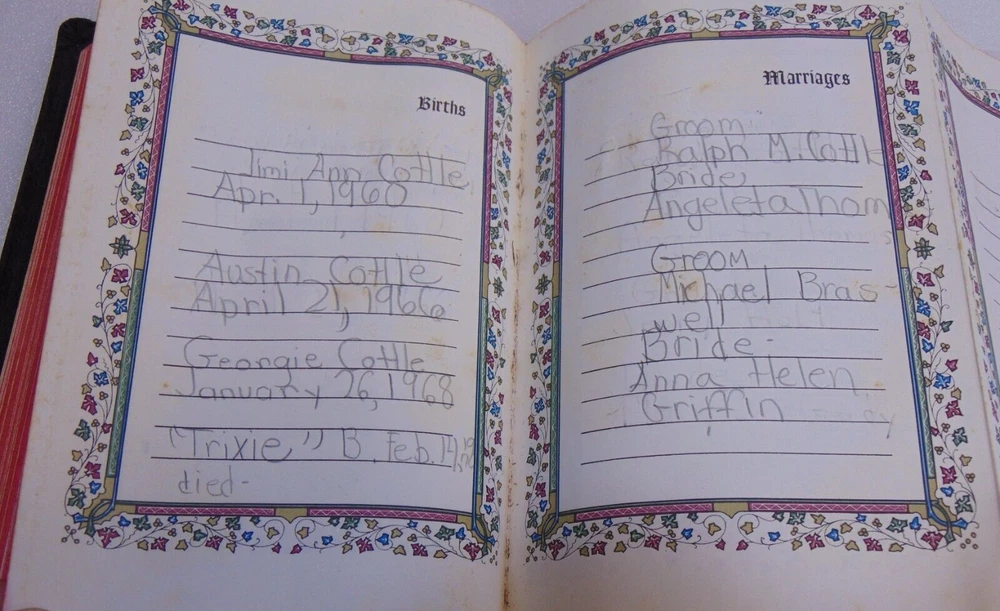 Births
Jimi Ann Cottle
Apr. 1, 1960
Austin Cottle
April 21, 1966
Georgie Cottle
January 26, 1968
"Trixie" B. Feb. 19,
died-
Marriages
Groom
Ralph M. Cottle
Bride,
Angeleta Thom
s
Groom
Michael Bras-
well
Bride-
Anna Helen
Griffin